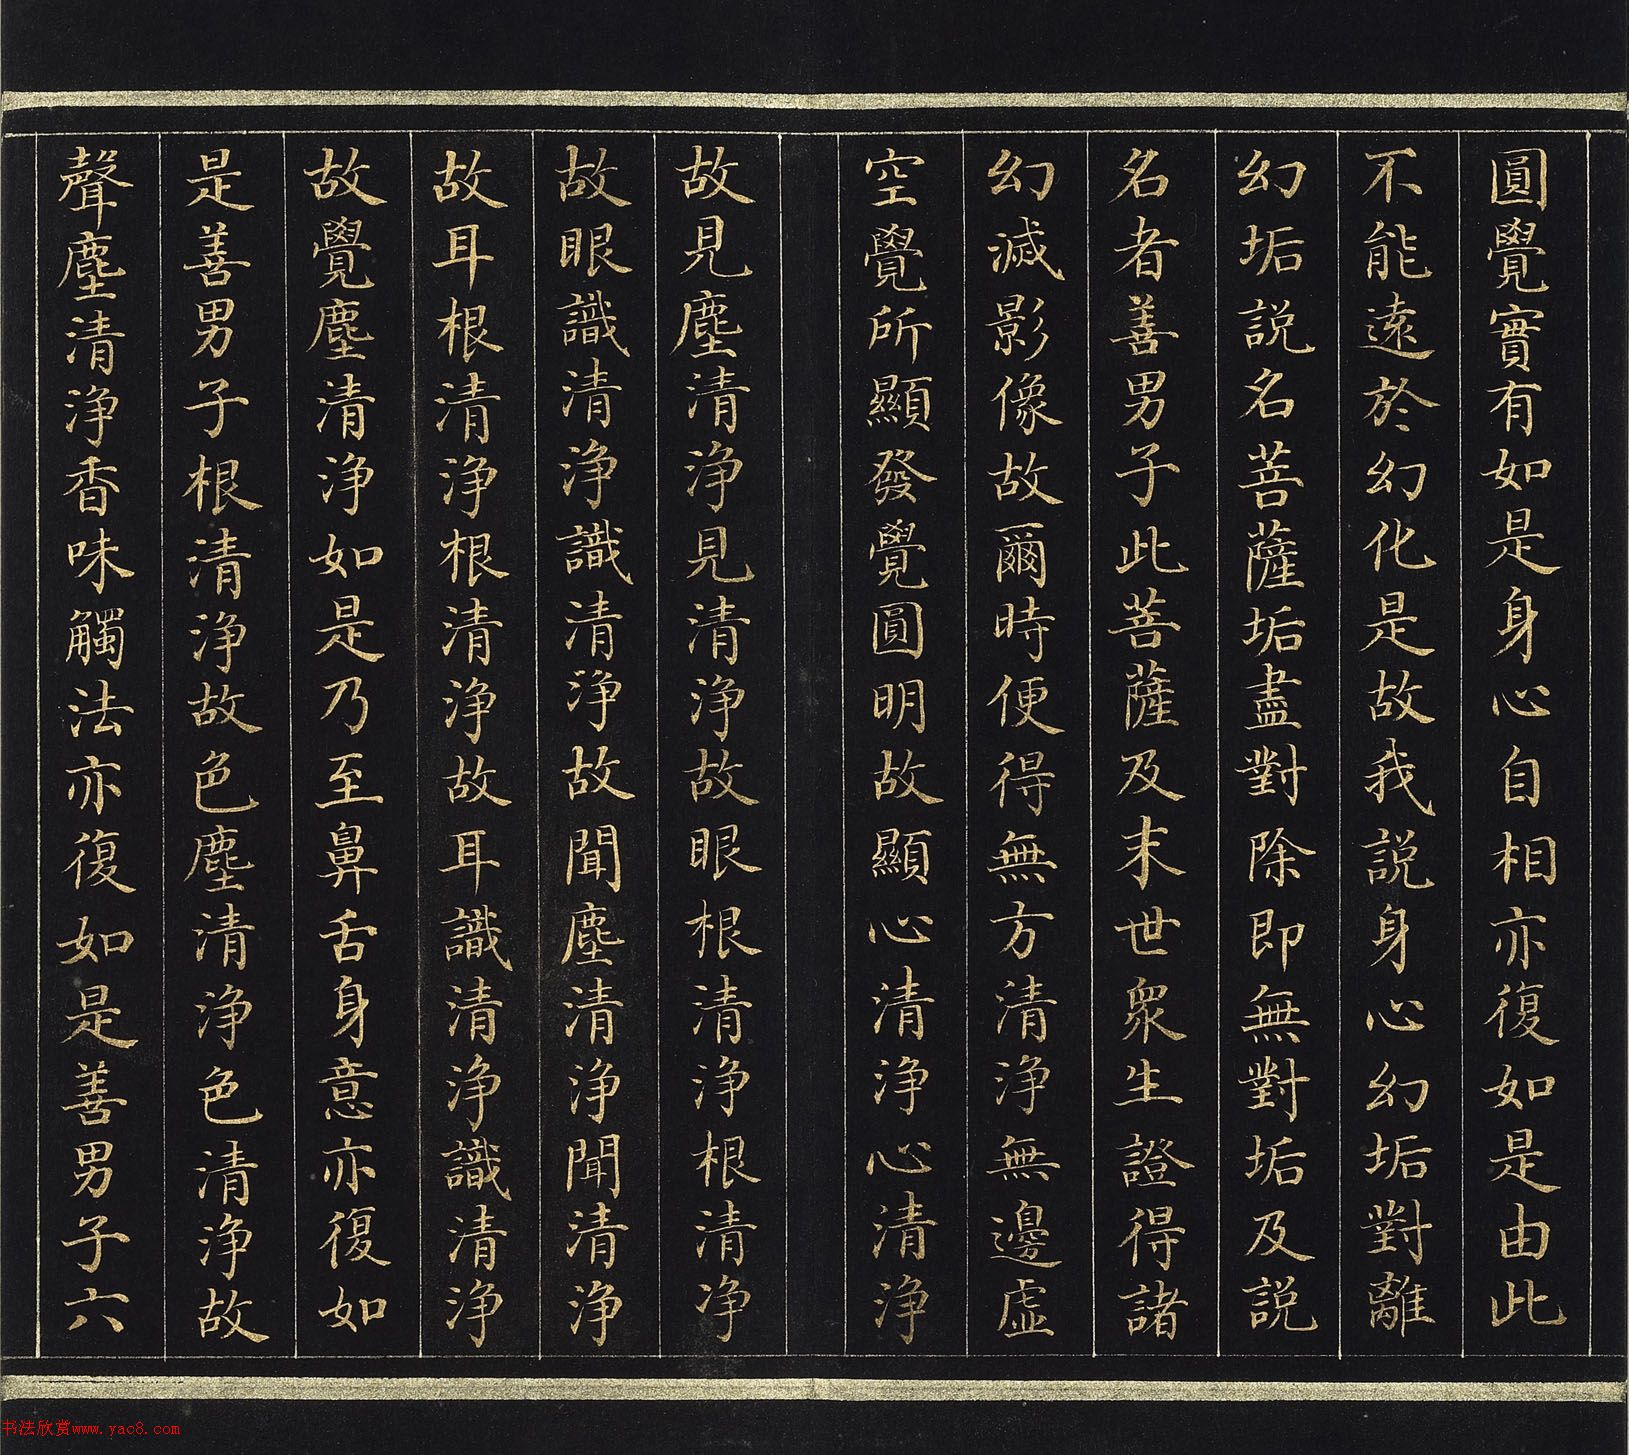 圓覺實有如是身心自相亦復如是由此
不能遠於幻化是故我説身心幻垢對離
幻垢説名菩薩垢盡對除即無對垢及説
名者善男子此菩薩及末世衆生證得諸
幻滅影像故爾時便得無方清淨無邊虛
空覺所顯發覺圓明故顯心清淨心清淨
故見塵清淨見清淨故眼根清淨根清淨
故眼識清淨識清淨故聞塵清淨聞清淨
故耳根清淨根清淨故耳識清淨識清淨
故覺塵清淨如是乃至鼻舌身意亦復如
是善男子根清淨故色塵清淨色清淨故
聲塵清淨香味觸法亦復如是善男子六
书法欣赏www.yac8.com